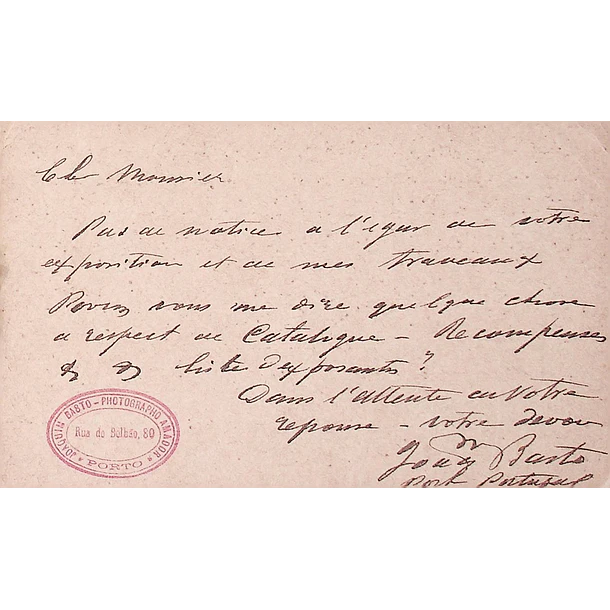 Cher Monsieur
Pas de notice a l'egar de votre
exposition et de mes traveaux
Povez vous me dire quelque chose
a respect de Catalogue - Recompenses
& & liste d'exposants?
Dans l'attente de Votre
reponse - votre devou
Joaqm Basto
Port Portugal
JOAQUIM BASTO - PHOTOGRAPHO AMADOR
Rua do Bolhão, 80
* PORTO *